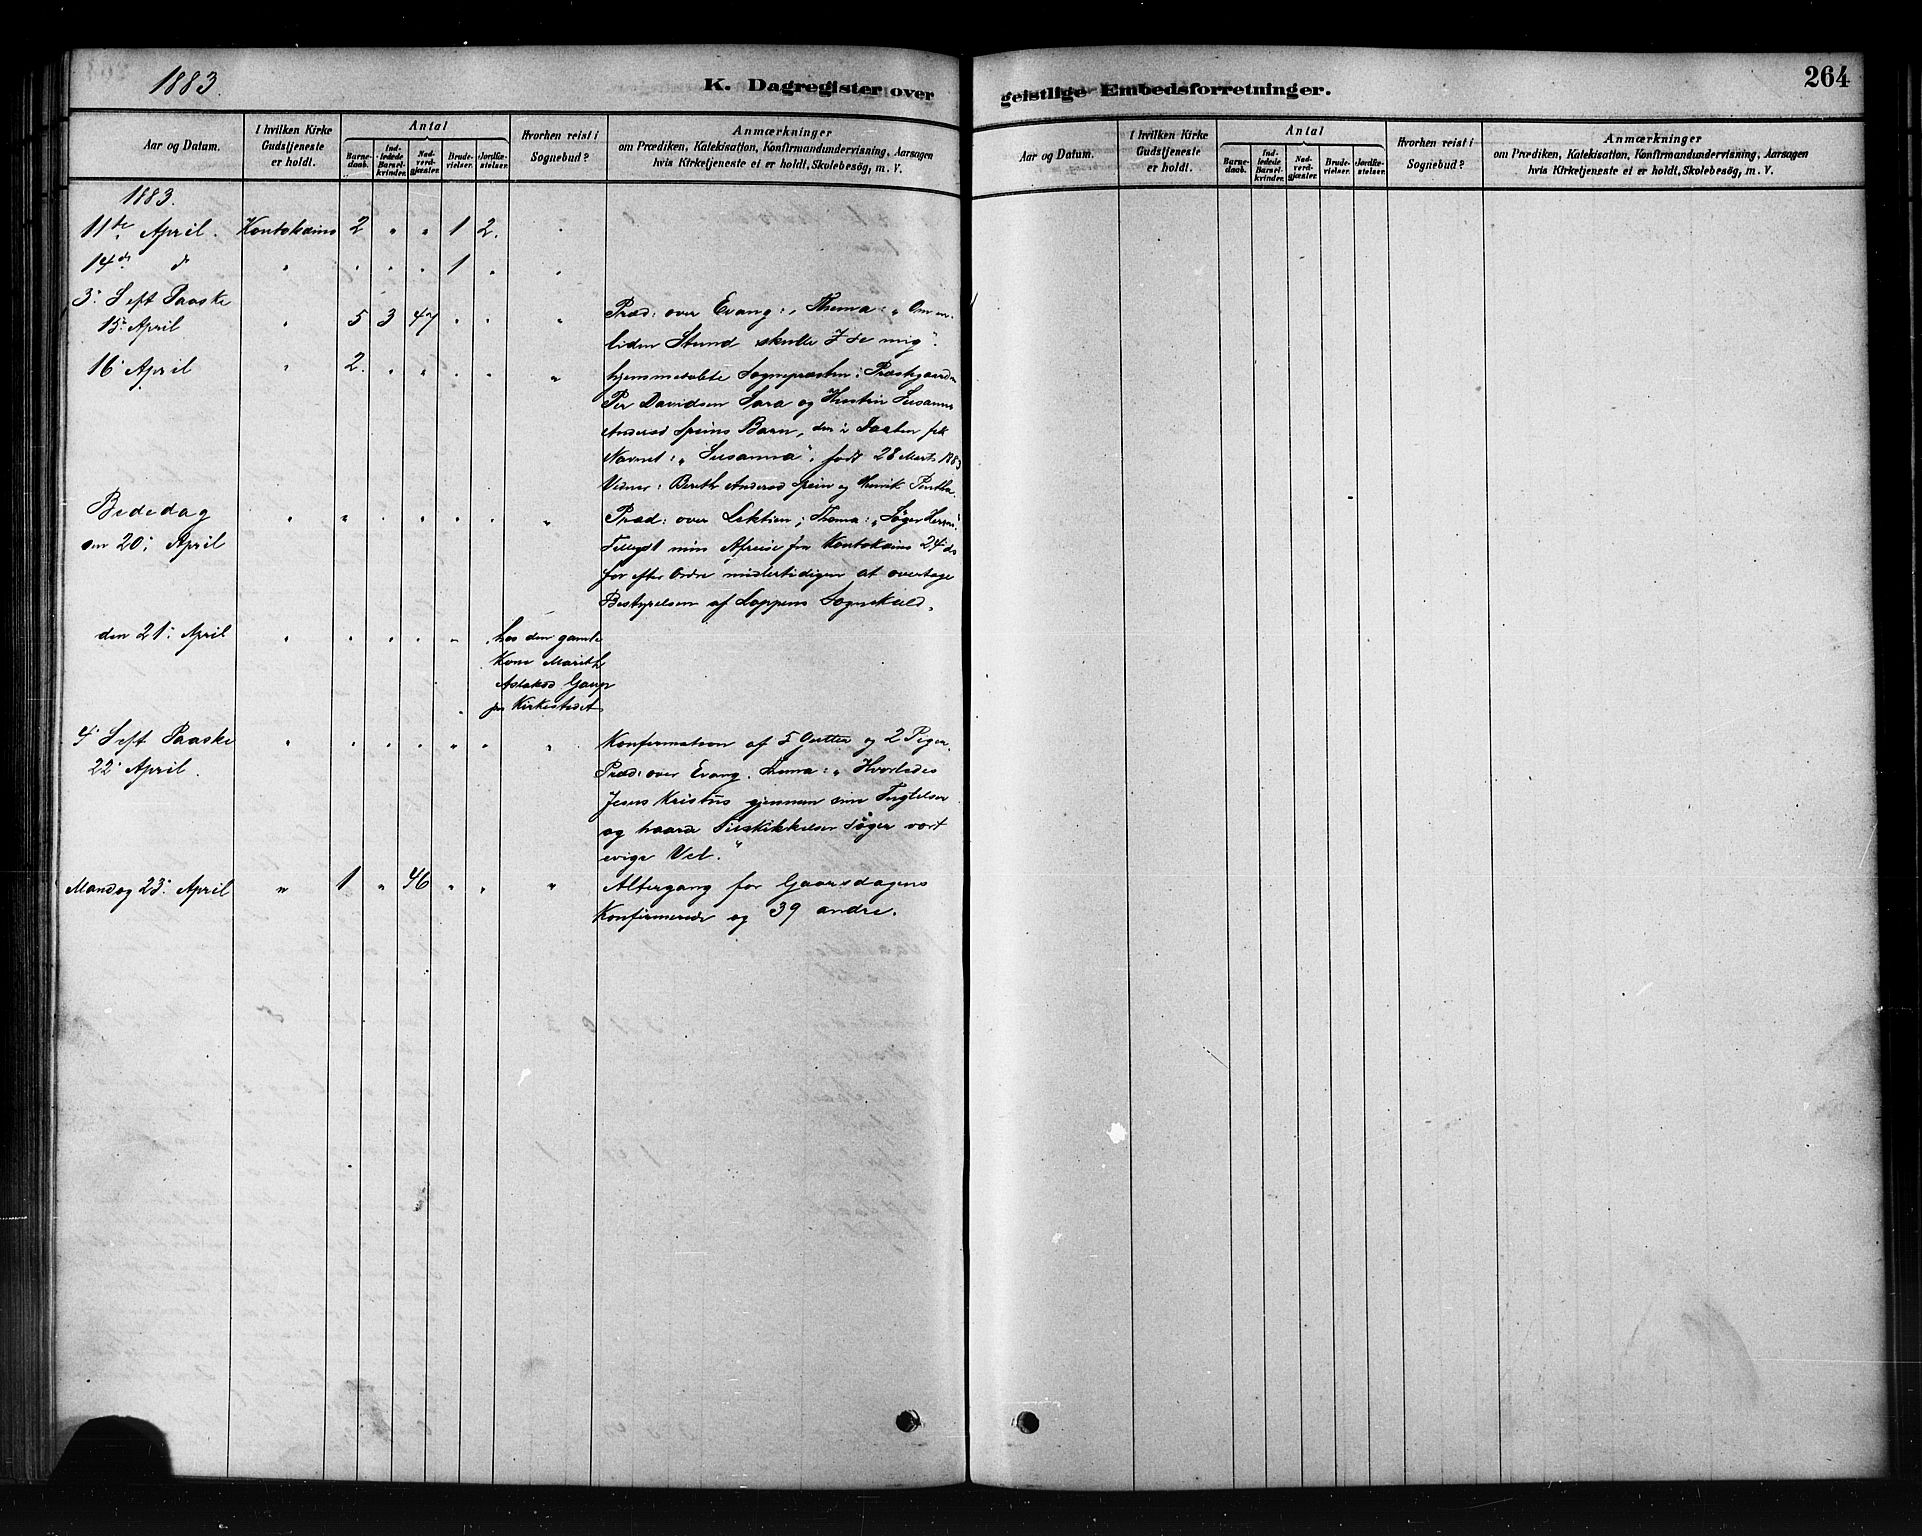 1883.
K. Dagregister over
Aar og Datum.
I hvilken Kirke
Gudstjeneste
er holdt.
Antal
Barne-
daab.
Ind-
ledede
Barsel-
kvinder.
Nad-
verd-
gjæster.
Brude-
vielser.
Jordfæ-
stelser.
Hvorhen reist i
Sognebud?
Anmærkninger
om Prædiken, Katekisation, Konfirmandundervisning, Aarsagen
hvis Kirketjeneste ei er holdt, Skolebesøg, m. V.
1883.
11te April. Koutokeino 2 " " 1 2. "
14de d " " " " 1 " "
3. S eft Paaske
15. April " 5 3 47 " " " Præd: over Evang:, Thema: "Om en
liden Stund skulle I se mig".
16 April " 2. " " " " " hjemmedøbte Sognepræsten i Præstegaarden
Per Davidsen Sara og Hustru Susanna
Andersd Speins Barn, der i Daaben fik
Navnet: "Susanna", født 28 Marts 1883
Vidner: Bereth Andersd Spein og Henrik
Bededag " " " " " " " Præd: over Lektien; Thema: "Søger Herren"
den 20. April Tillyst min Afreise fra Koutokeino 24 ds
for efter Ordre midlertidigen at overtage
Bestyrelsen af Loppens Sognekald.
den 21. April " " " " " " hos den gamle
Kone Marith
Aslaksd Gaup
paa Kirkestedet
4. S eft Paaske " " " " " " " Konfirmation af 5 Gutter og 2 Piger.
22. April. Præd: over Evang. Thema: "Hvorledes
Jesus Kristus gjennem sine Tugtelser
og haarde Tilskikkelser søger vort
evige Vel."
Mandag 23. April " 1 " 46 " " " Altergang for Gaarsdagens
Konfirmerede og 39 andre.
geistlige Embedsforretninger.
264
Aar og Datum.
I hvilken Kirke
Gudstjeneste
er holdt.
Antal
Barne-
daab.
Ind-
ledede
Barsel-
kvinder.
Nad-
verd-
gjæster.
Brude-
vielser.
Jordfæ-
stelser.
Hvorhen reist i
Sognebud?
Anmærkninger
om Prædiken, Katekisation, Konfirmandundervisning, Aarsagen
hvis Kirketjeneste ei er holdt, Skolebesøg, m. V.